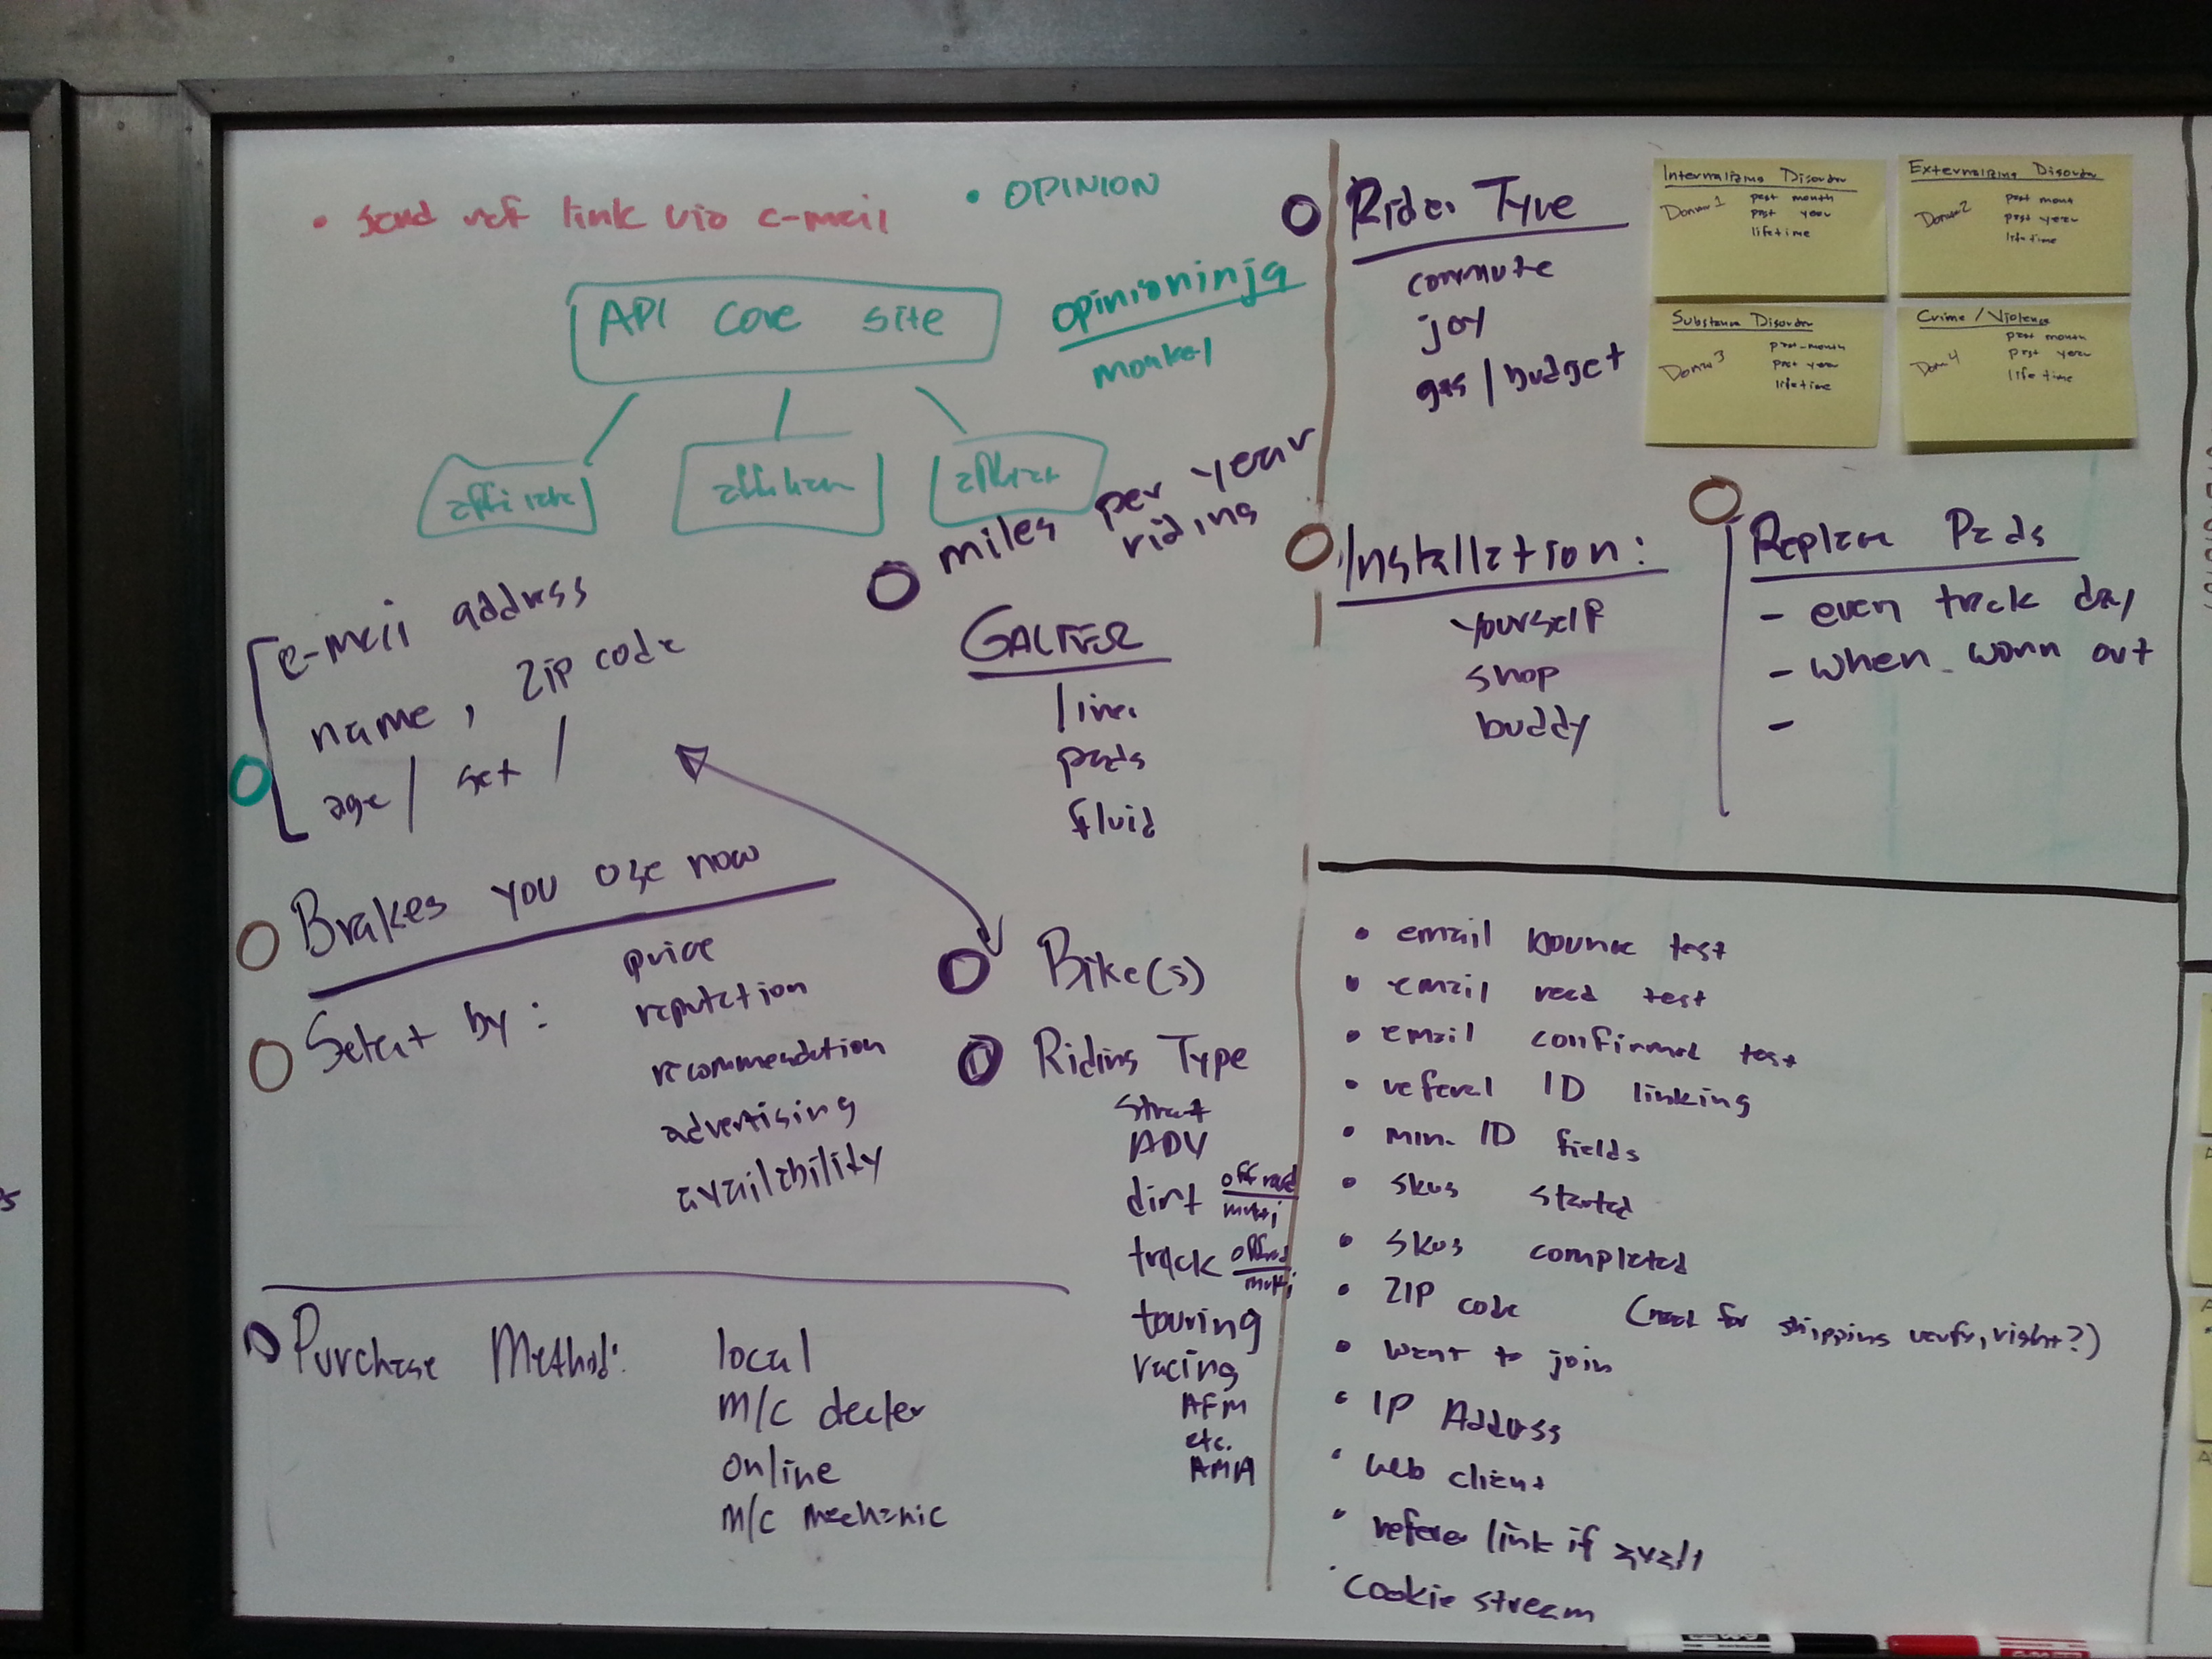 • send ref link via e-mail
• OPINION
API core site
opinioninja
monkey
affiliate
miles per year
riding
e-mail address
name, zip code
age / sex /
GALFER
lines
pads
fluid
Brakes you use now
Select by:
price
reputation
recommendation
advertising
availability
Bike(s)
Riding Type
street
ADV
dirt off road
moto
track
touring
racing
AFM
etc.
AMA
Purchase Method:
local
M/C dealer
online
M/C mechanic
Rider Type
commute
joy
gas / budget
Internalizing Disorder
past month
past year
lifetime
Externalizing Disorder
past month
past year
lifetime
Substance Disorder
past-month
past year
lifetime
Crime / Violence
past month
past year
lifetime
Installation:
yourself
shop
buddy
Replace Pads
- even track day
- when worn out
-
• email bounce test
• email read test
• email confirmed test
• referal ID linking
• min. ID fields
• skus started
• skus completed
• ZIP code (need for shipping verify, right?)
• want to join
• IP Address
• web client
• referer link if avail
• cookie stream